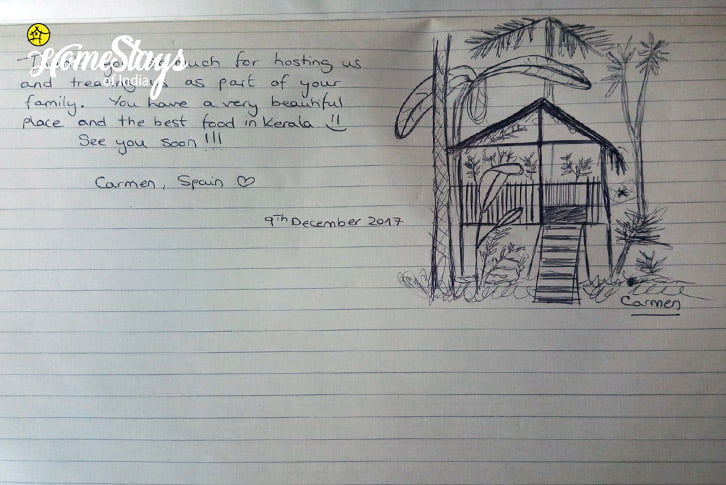 HomeStays
of India
much for hosting us
and treating as part of your
family. You have a very beautiful
place and the best food in Kerala !!
See you soon !!!
Carmen, Spain ♡
9Th December 2017
Carmen